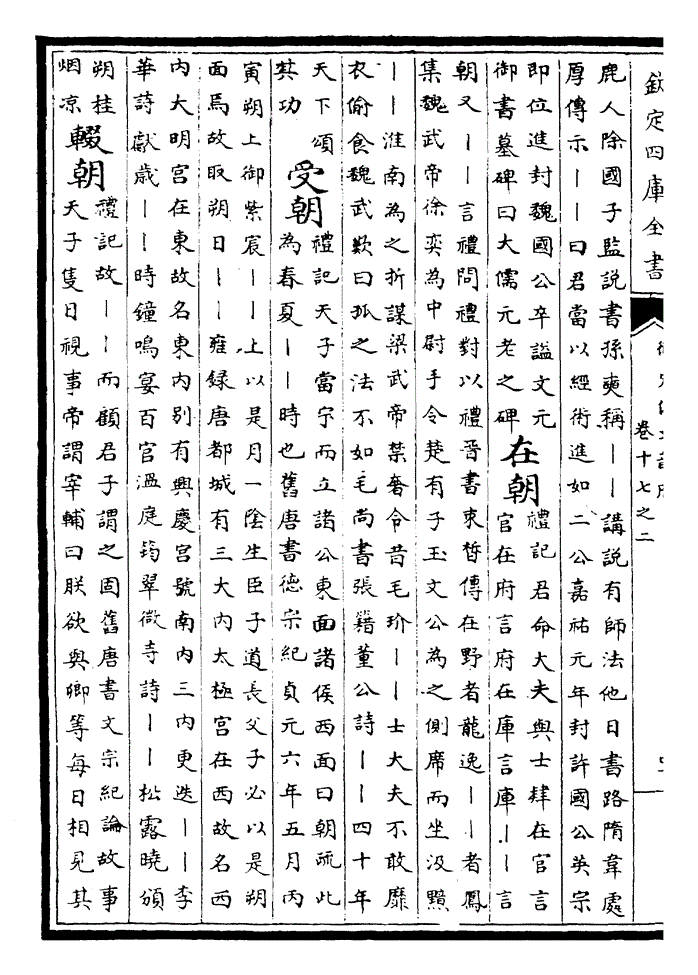 欽定四庫全書
卷十七之二
鹿人除國子監説書孫奭稱丨丨講説有師法他日書路隋韋處
厚傳示丨丨曰君當以經術進如二公嘉祐元年封許國公英宗
即位進封魏國公卒謚文元
御書墓碑曰大儒元老之碑
在朝
禮記君命大夫與士肄在官言
官在府言府在庫言庫丨丨言
朝又丨丨言禮問禮對以禮晉書束皙傳在野者龍逸丨丨者鳳
集魏武帝徐奕為中尉手令楚有子玉文公為之側席而坐汲黯
丨丨淮南為之折謀梁武帝禁奢令昔毛玠丨丨士大夫不敢靡
衣偷食魏武歎曰孤之法不如毛尚書張籍董公詩丨丨四十年
天下頌
其功
受朝
禮記天子當宁而立諸公東面諸侯西面曰朝疏此
為春夏丨丨時也舊唐書德宗紀貞元六年五月丙
寅朔上御紫宸丨丨上以是月一陰生臣子道長父子必以是朔
面焉故取朔日丨丨雍録唐都城有三大内太極宫在西故名西
内大明宫在東故名東内别有興慶宫號南内三内更迭丨丨李
華詩獻歳丨丨時鐘鳴宴百官温庭筠翠微寺詩丨丨松露曉頒
朔桂
烟凉
輟朝
禮記故丨丨而顧君子謂之固舊唐書文宗紀論故事
天子隻日視事帝謂宰輔曰朕欲與卿等每日相見其